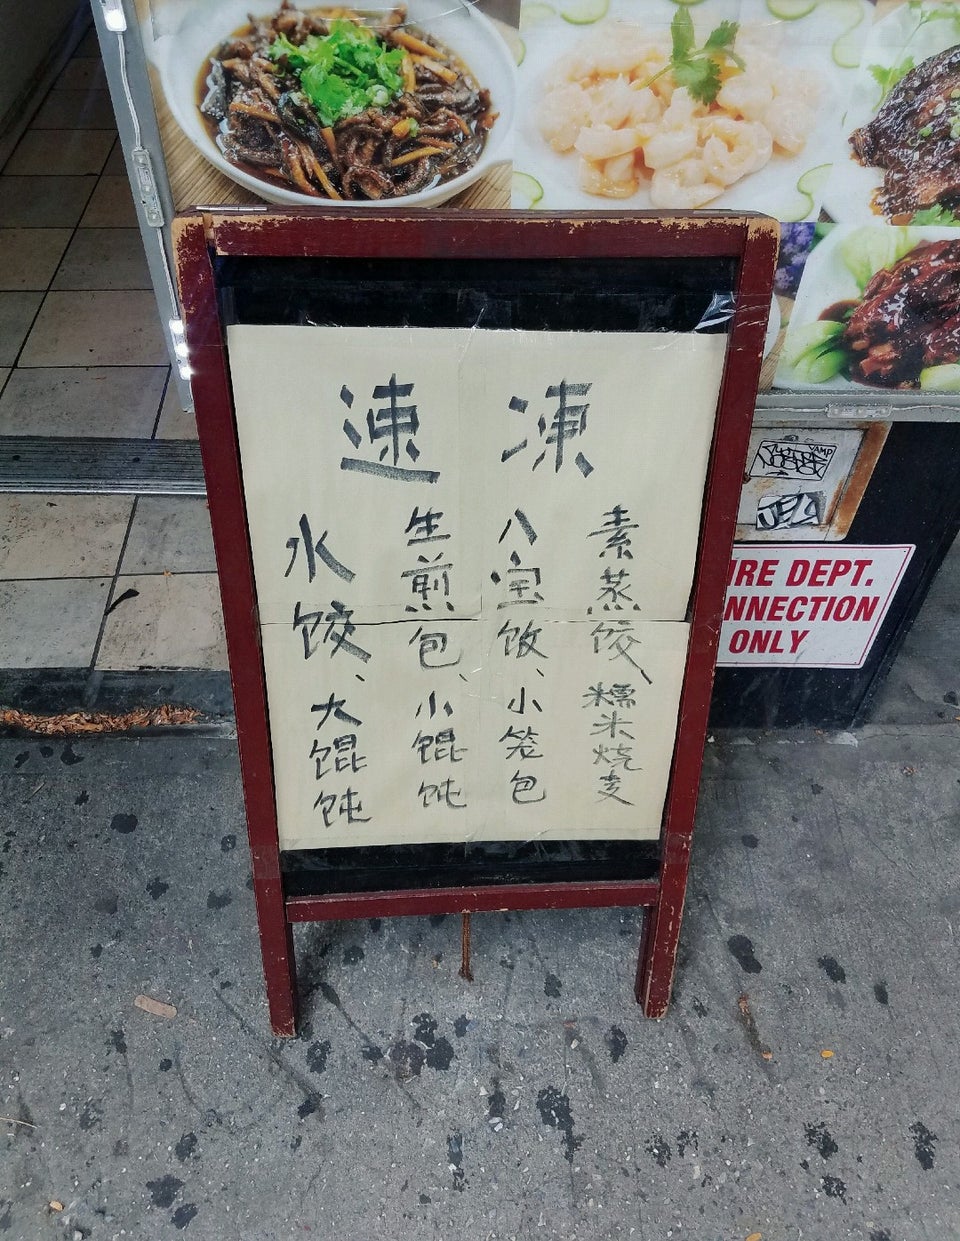 速凍
水餃、大餛飩
生煎包、小餛飩
八宝饭、小笼包
素蒸餃、糯米烧麦
IRE DEPT.
NNECTION
ONLY
VAMP